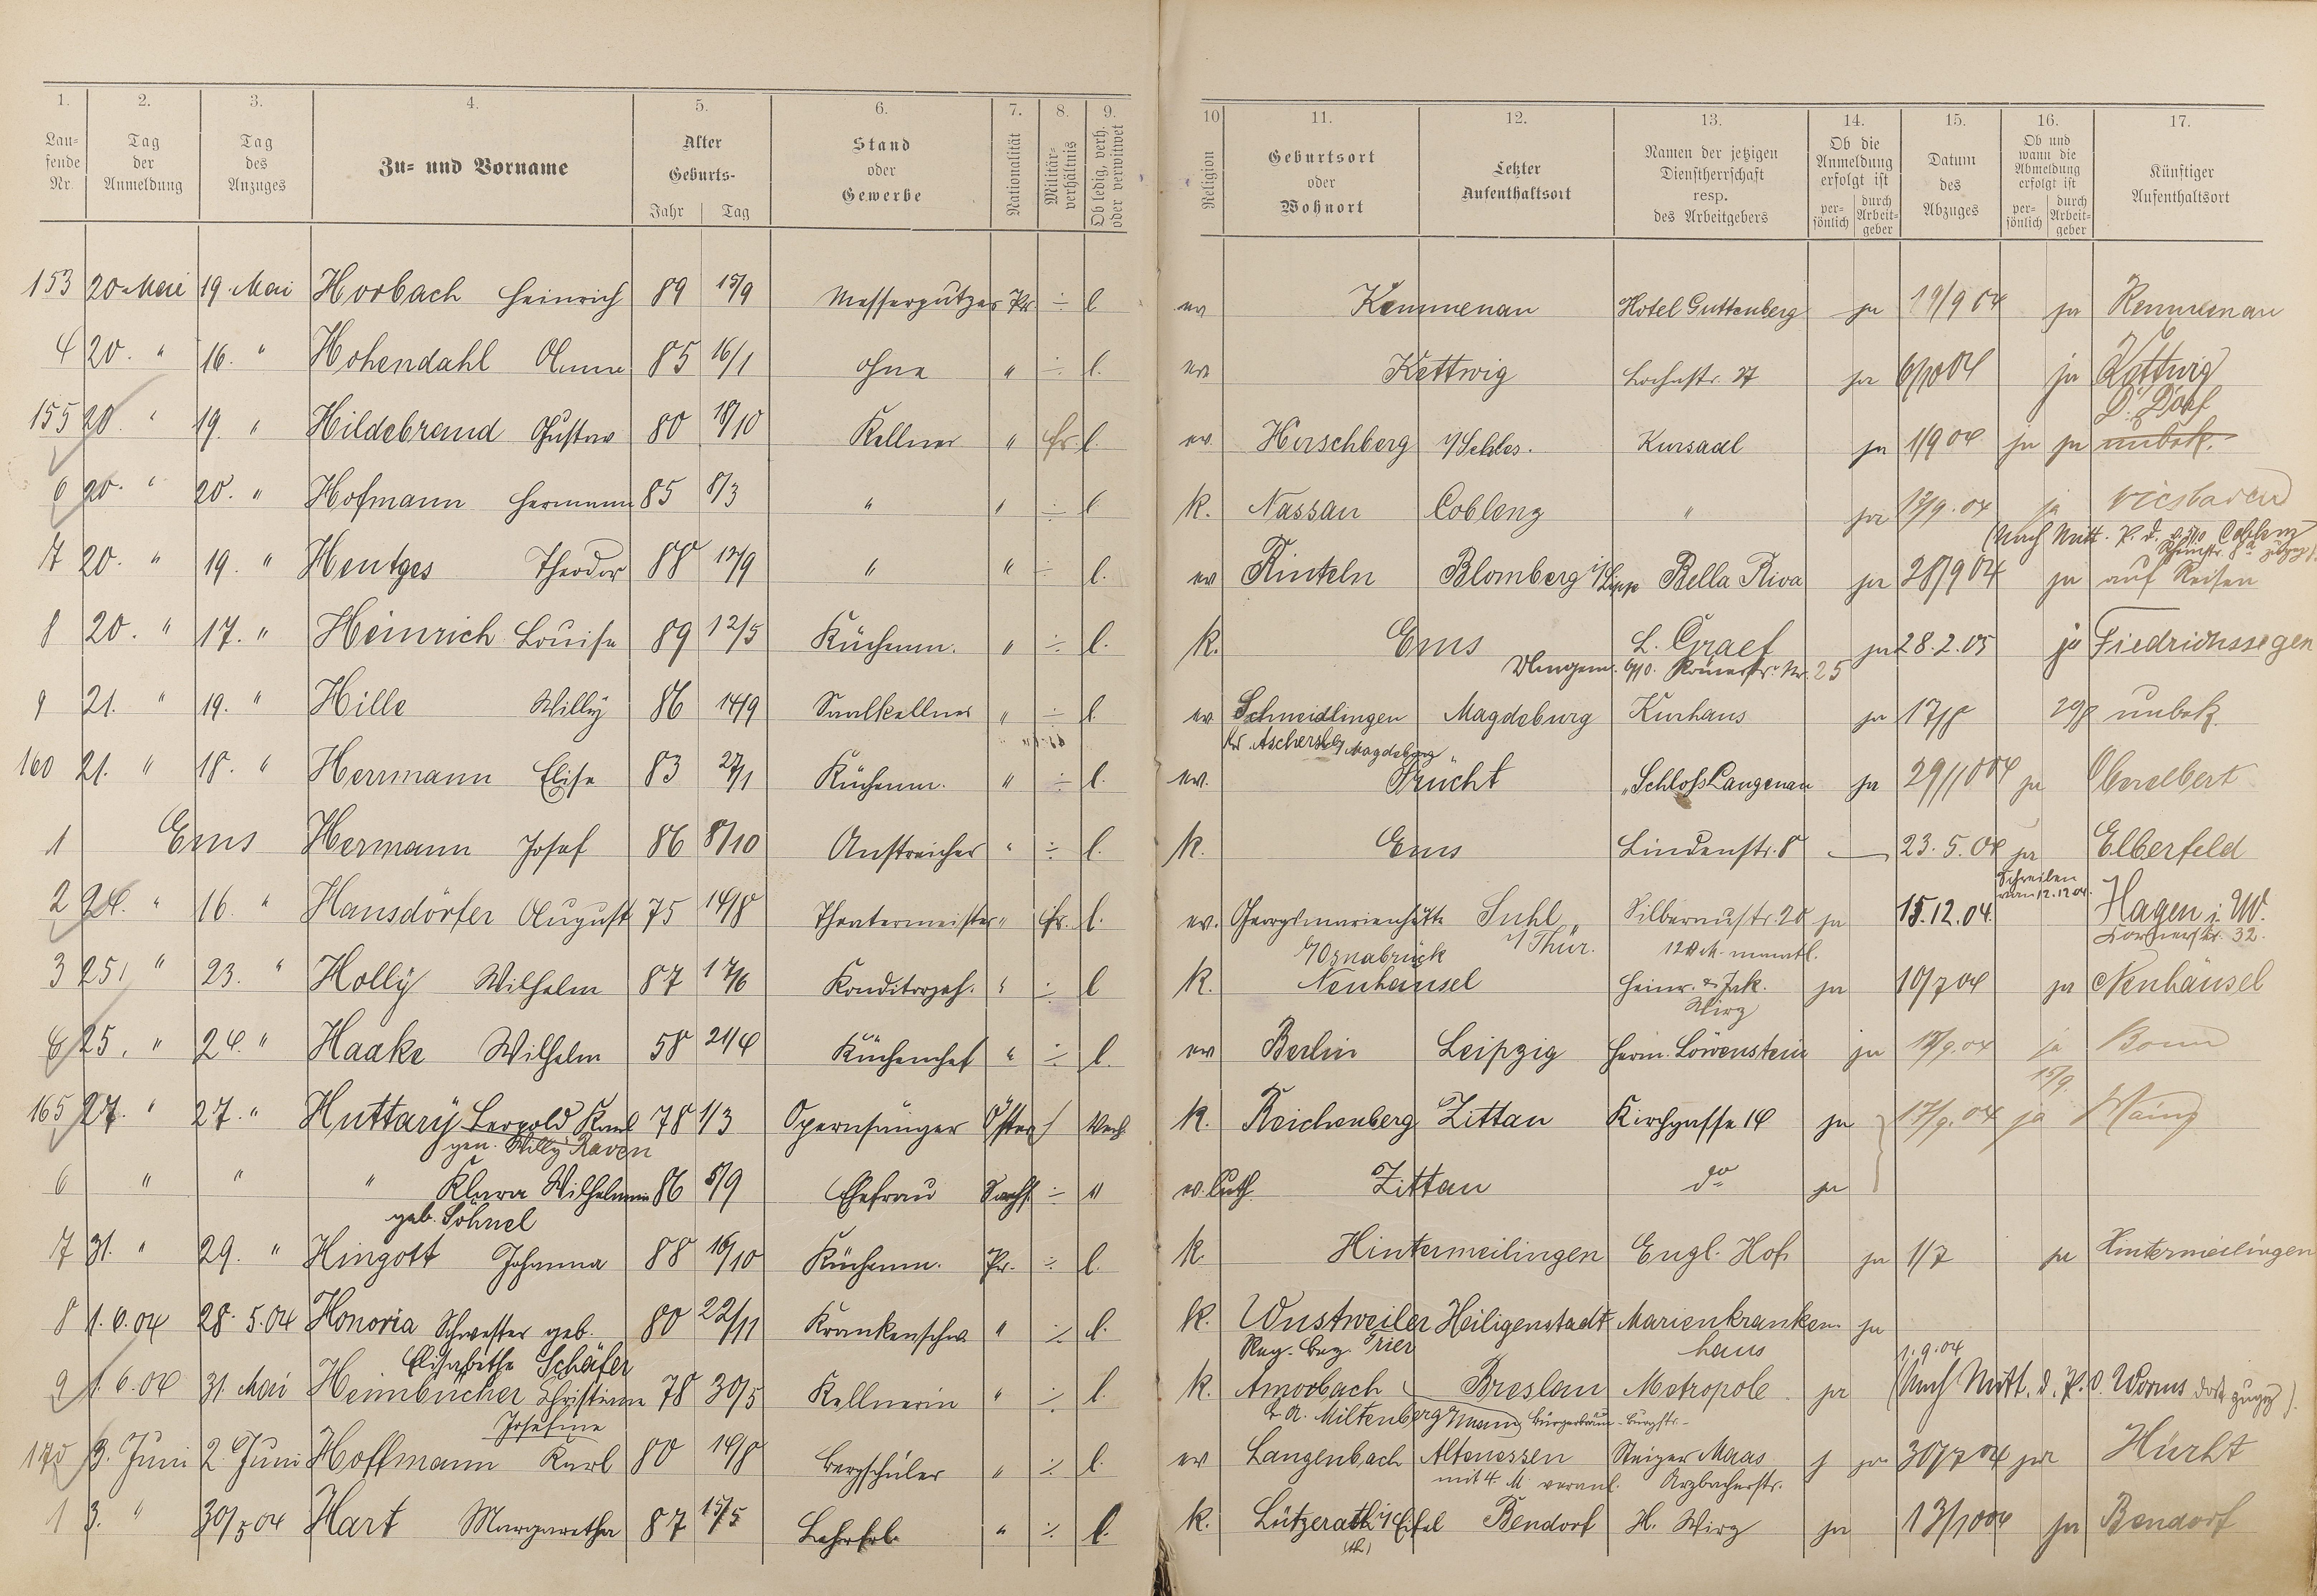 1. 2. 3. 4. 5. 6. 7. 8. 9. 10 11. 12. 13. 14. 15. 16. 17.
Lau-
fende
Nr.
Tag
der
Anmeldung
Tag
des
Anzuges
Zu- und Vorname
Alter
Geburts-
Jahr Tag
Stand
oder
Gewerbe
Nationalität
Militär-
verhältnis
Ob ledig, verh.
oder verwitwet
Religion
Geburtsort
oder
Wohnort
Letzter
Aufenthaltsort
Namen der jetzigen
Dienstherrschaft
resp.
des Arbeitgebers
Ob die
Anmeldung
erfolgt ist
per-
sönlich
durch
Arbeit-
geber
Datum
des
Abzuges
Ob und
wann die
Abmeldung
erfolgt ist
per-
sönlich
durch
Arbeit-
geber
Künftiger
Aufenthaltsort
153 20 Mai 19. Mai Horbach Heinrich 89 15/9 Messerputzer Pr ÷ l ev Kemmenau Hotel Guttenberg ja 19/9 04 ja Kemmenau
4 20. " 16. " Hohendahl Anna 85 16/1 ohne " ÷ l. ev Kettwig 27 ja 6/10 04 ja Kettwig
155 20. " 19. " Hildebrand Gustav 80 18/10 Kellner " l. ev. Hirschberg i/Schles. Kursaal ja 1/9 04 ja ja D.Dorf unbek.
6 20. " 20. " Hofmann Hermann 85 8/3 " " ÷ l k. Nassau Coblenz " ja 17/9.04 ja Wiesbaden
(Nach Mitt. P. d. Coblenz
7 20. " 19. " Hentges Theodor 88 " " ÷ l. ev Rinteln Blomberg i/Lipp Bella Riva ja 28/9 04 ja auf Reisen
8 20. " 17. " Heinrich Louise 89 12/5 Küchenm. " ÷ l. k. Ems L. Graef ja 28.2.05 ja Fiedrichssegen
Römerstr. Nr. 25
9 21. " 19. " Hille Willy 86 14/9 Saalkellner " ÷ l. ev Schneidlingen Magdeburg Kurhaus ja 17/8 29/8 unbek.
Magdeburg
160 21. " 18. " Herrmann Elise 83 27/1 Küchenm. " ÷ l. ev. Frücht "Schloß Langenau ja 29/10 04 ja Oberelbert
1 Ems Hermann Josef 86 8/10 Anstreicher " ÷ l. k. Ems Lindenstr. 8 — 23.5.04 ja Elberfeld
Schreiben
vom 12.12.04.
2 24. " 16. " Hansdörfer August 75 14/8 Theatermeister " l. ev. Georgsmarienhütte Suhl Silberaustr. 20 ja 15.12.04. Hagen i. W.
b/Osnabrück i/Thür. 120 M. monatl. 32.
3 25. " 23. " Holly Wilhelm 87 17/6 Konditorgeh. " ÷ l k. Neuhäusel Heinr. & Jak. ja 10/7 04 ja Neuhäusel
Wirz
4 25. " 24. " Haake Wilhelm 58 21/4 Küchenchef " ÷ l. ev Berlin Leipzig Herm. Löwenstein ja 04 ja Bonn
15/9.
165 27. " 27. " Huttary Leopold Karl 78 1/3 Opernsänger Öster / verh k. Reichenberg Zittau Kirchgasse 14 ja 17/9.04 ja Mainz
gen. Willy Raven
6 " " " Klara Wilhelmine 86 8/9 Ehefrau Sachs. ÷ " ev. luth. Zittau do ja
geb. Söhnel
7 31. " 29. " Hingott Johanna 88 16/10 Küchenm. Pr. ÷ l. k. Hintermeilingen Engl. Hof. ja 1/7 ja Hintermeilingen
8 1.6.04 28.5.04 Honoria Schwester geb. 80 22/11 Krankenschw. " ÷ l. k. Wustweiler Heiligenstadt Marienkranken- ja
Elisabethe Schäfer Reg. Bez. Trier haus
1.9.04
9 1.6.04 31 Mai Heimbücher Christine 78 30/5 Kellnerin " ÷ l. k. Amorbach Breslau Metropole ja (Nach Mitt. d. P. V. Worms dort zugez.)
Josefine B. A. Miltenberg
170 3. Juni 2. Juni Hoffmann Karl 80 14/8 Bergschüler " ÷ l. ev Langenbach Altenessen Steiger Maas ja 30/7 04 ja Hürht
mit 4 M veranl. Arzbacherstr.
1 3. " 30/5 04 Hart Margaretha 87 15/5 " ÷ l. k. Lützerath i/Eifel Bendorf H. Wirz ja 13/10 04 ja Bendorf
(th)